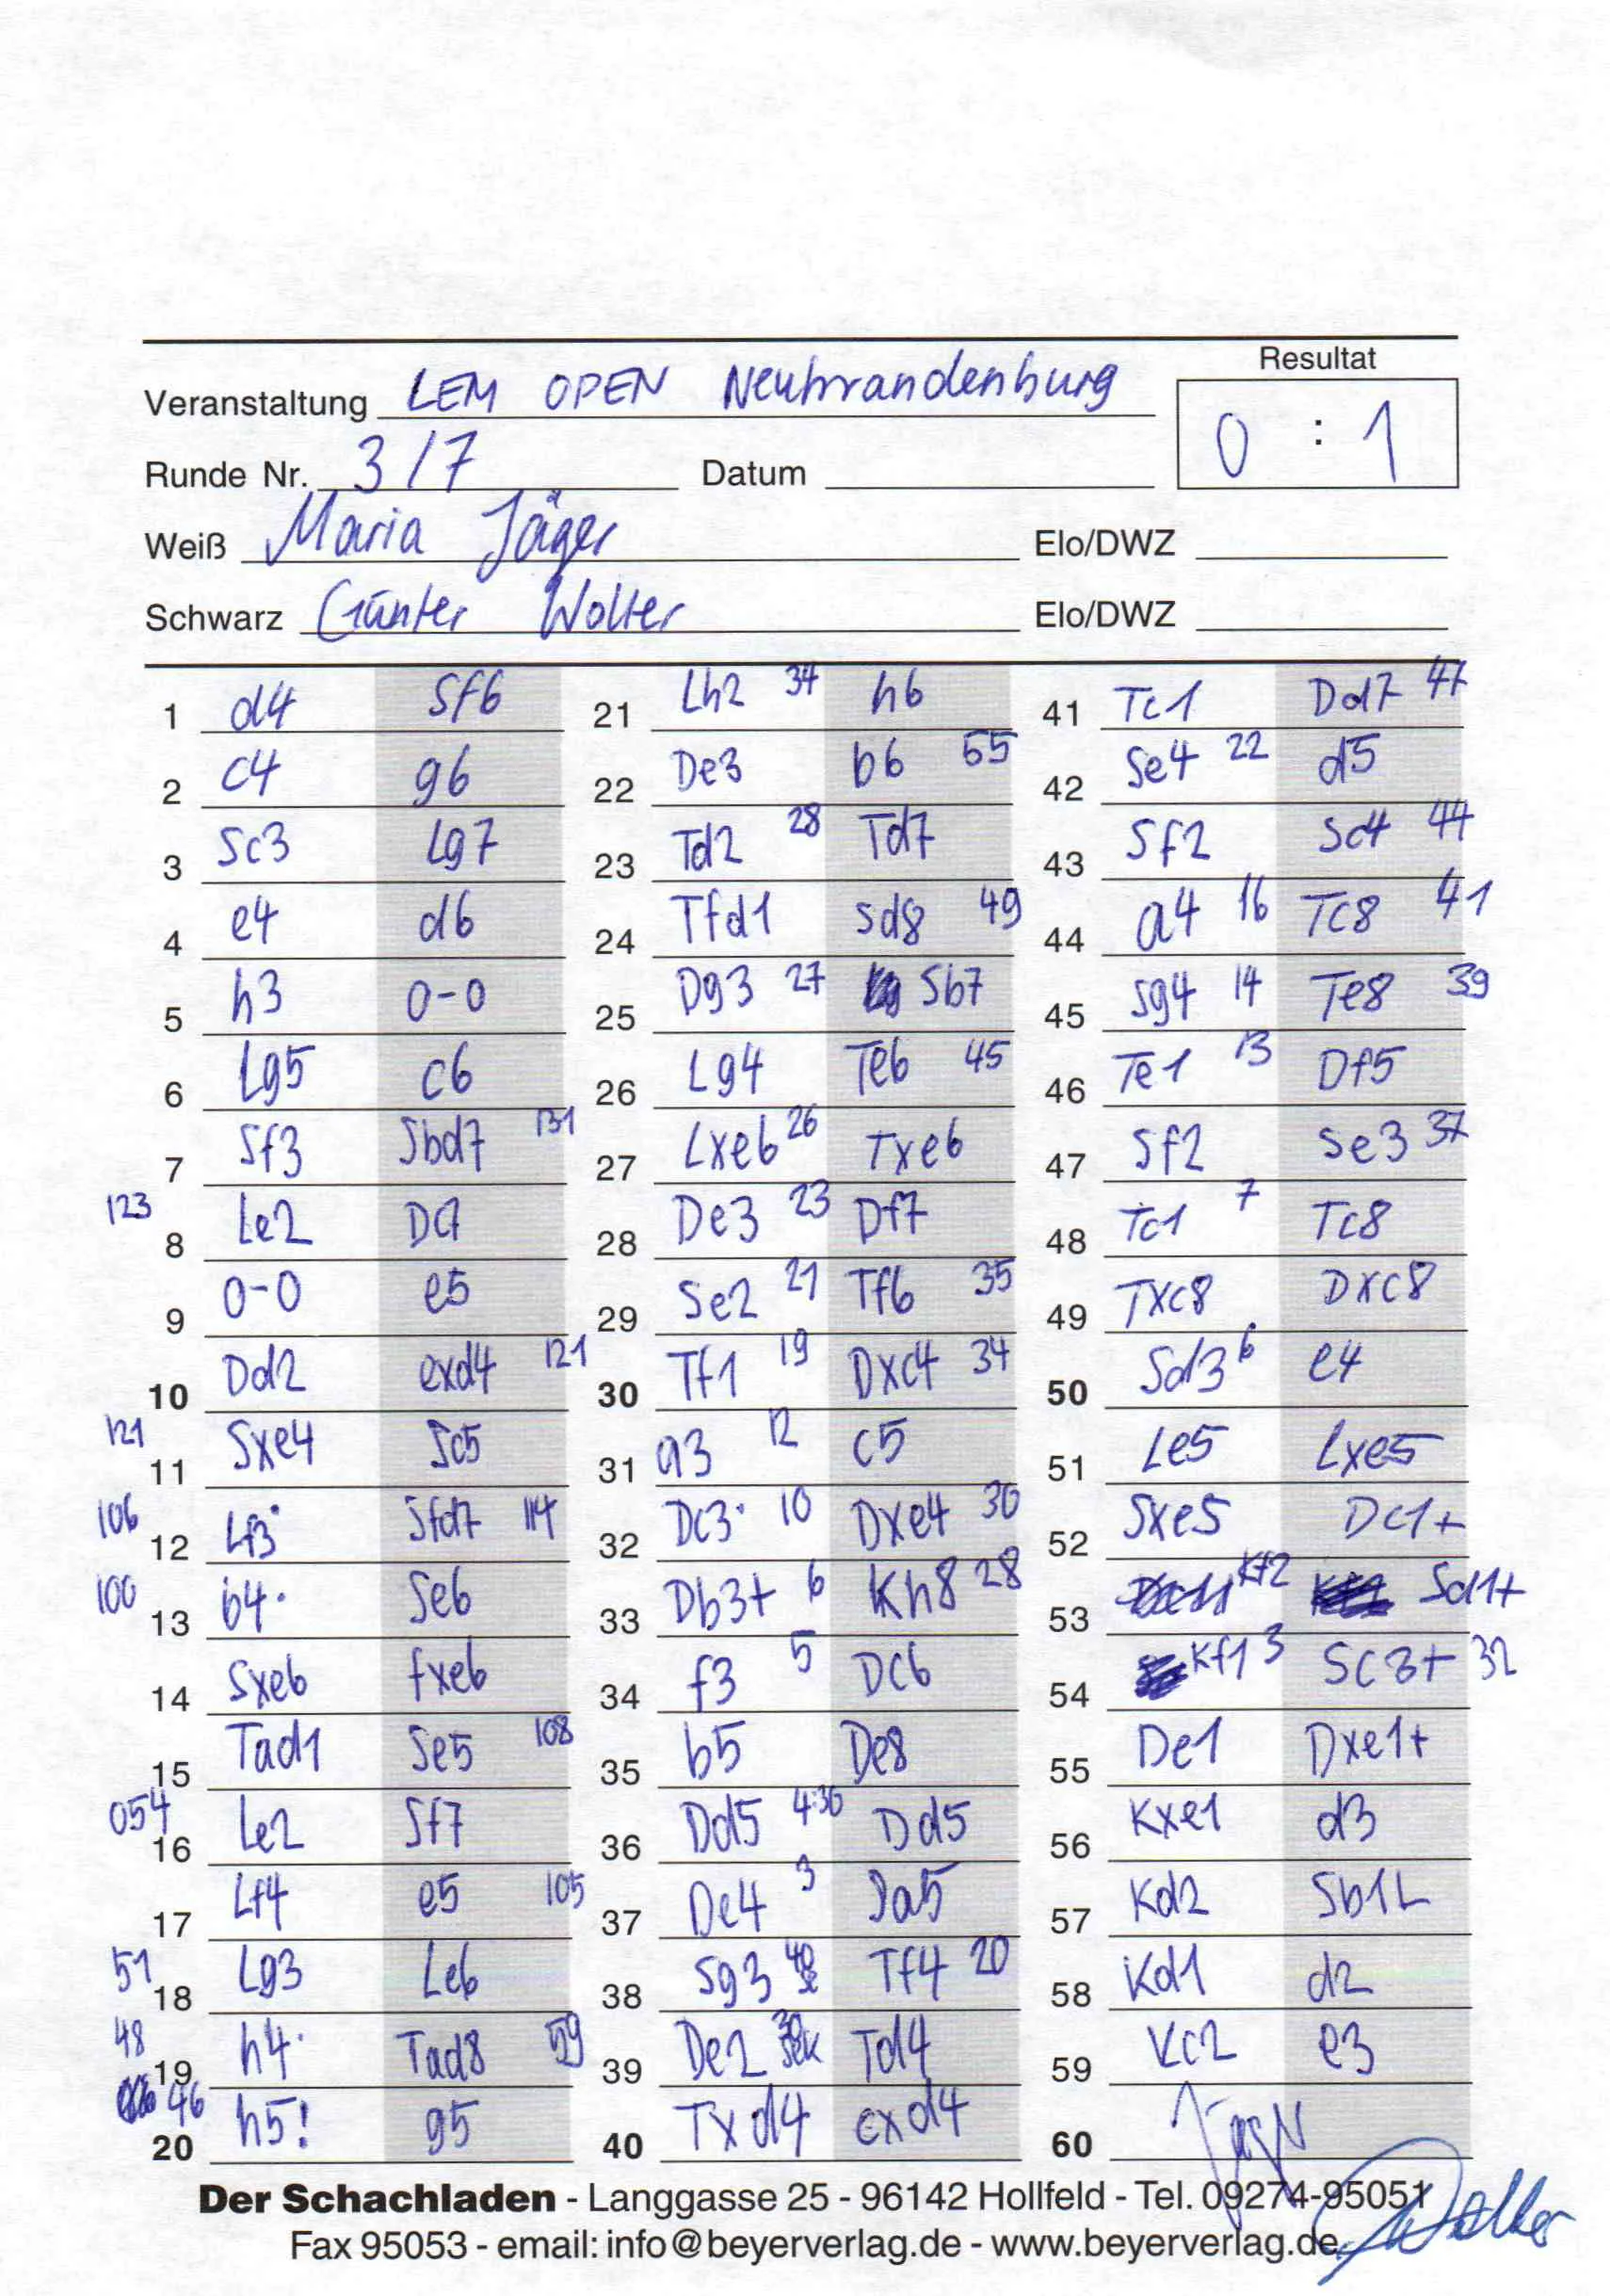 Resultat
Veranstaltung LEM OPEN Neubrandenburg
0 : 1
Runde Nr. 3/7 Datum
Weiß Maria Jäger Elo/DWZ
Schwarz Günter Wolter Elo/DWZ
1 d4 Sf6
2 c4 g6
3 Sc3 Lg7
4 e4 d6
5 h3 0-0
6 Lg5 c6
7 Sf3 Sbd7 131
123 8 Le2 Dc7
9 0-0 e5
10 Dd2 exd4 121
121 11 Sxe4 Sc5
106 12 Lf3 Sfd7 114
100 13 b4 Se6
14 Sxe6 fxe6
15 Tad1 Se5 108
054 16 Le2 Sf7
17 Lf4 e5 105
51 18 Lg3 Le6
48 19 h4 Tad8 59
46 20 h5! g5
21 Lh2 34 h6
22 De3 b6 55
23 Td2 28 Td7
24 Tfd1 Sd8 49
25 Dg3 27 Sb7
26 Lg4 Te6 45
27 Lxe6 26 Txe6
28 De3 23 Df7
29 Se2 21 Tf6 35
30 Tf1 19 Dxc4 34
31 a3 12 c5
32 Dc3 10 Dxe4 30
33 Db3+ 6 Kh8 28
34 f3 5 Dc6
35 b5 De8
36 Dd5 4:36 Dd5
37 De4 3 Sa5
38 Sg3 Tf4 20
39 De2 30 Sek Td4
40 Txd4 exd4
41 Tc1 Dd7 47
42 Se4 22 d5
43 Sf2 Sc4 44
44 a4 16 Tc8 41
45 Sg4 14 Te8 39
46 Te1 13 Df5
47 Sf2 Se3 37
48 Tc1 7 Tc8
49 Txc8 Dxc8
50 Sd3 6 e4
51 Le5 Lxe5
52 Sxe5 Dc1+
53 Kf2 Sd1+
54 Kf1 3 Sc3+ 32
55 De1 Dxe1+
56 Kxe1 d3
57 Kd2 Sb1+
58 Kd1 d2
59 Kc2 e3
60
Der Schachladen - Langgasse 25 - 96142 Hollfeld - Tel. 09274-95051
Fax 95053 - email: info@beyerverlag.de - www.beyerverlag.de